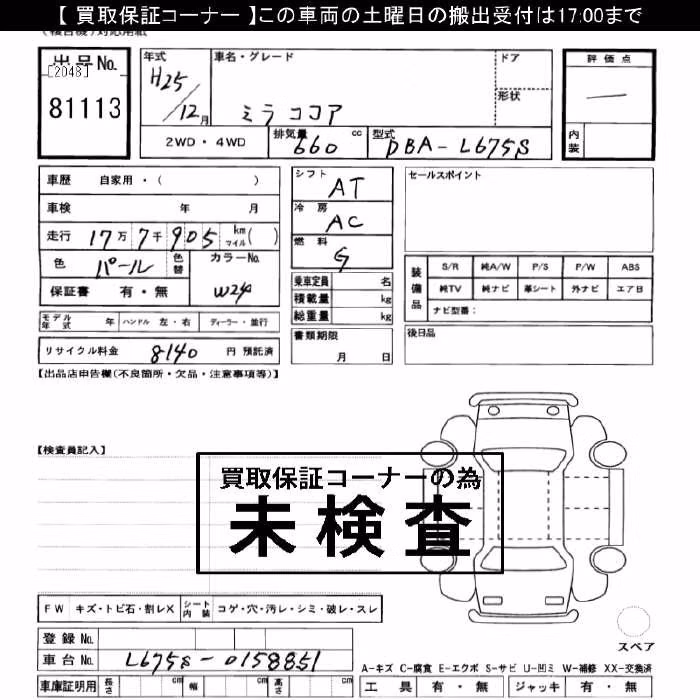 【 買取保証コーナー 】この車両の土曜日の搬出受付は17:00まで
出品No.
[2048]
81113
年式
H25
/12月
車名・グレード
ミラココア
ドア
形状
評価点
—
内装
2WD・4WD
排気量 660 cc
型式 DBA-L675S
車歴 自家用・( )
車検 年 月
走行 17万7千905 km マイル( )
色 パール 色替
カラーNo. W24
保証書 有・無
モデル年式 年 ハンドル 左・右 ディーラー・並行
リサイクル料金 8140 円 預託済
シフト AT
冷房 AC
燃料 G
乗車定員 名
積載量 kg
総重量 kg
書類期限
月 日
セールスポイント
装備品
S/R 純A/W P/S P/W ABS
純TV 純ナビ 革シート 外ナビ エアB
ナビ型番:
後日品
【出品店申告欄(不良箇所・欠品・注意事項等)】
【検査員記入】
買取保証コーナーの為
未検査
FW キズ・トビ石・割レX シート内装 コゲ・穴・汚レ・シミ・破レ・スレ
登録No.
車台No. L675S-0158851
車庫証明用 長さ cm 幅 cm 高さ cm
スペア
A-キズ C-腐食 E-エクボ S-サビ U-凹ミ W-補修 XX-交換済
工具 有・無 ジャッキ 有・無